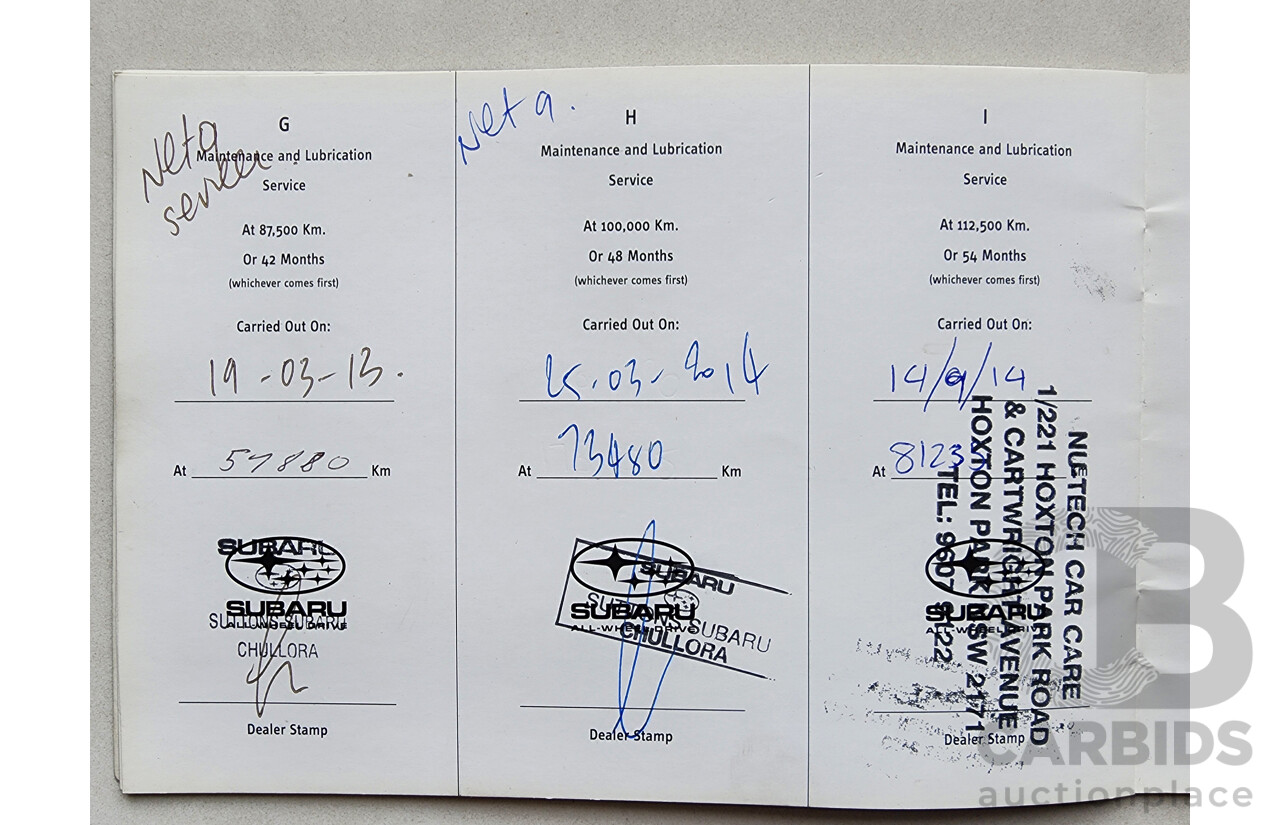 Net a
service
G
Maintenance and Lubrication
Service
At 87,500 Km.
Or 42 Months
(whichever comes first)
Carried Out On:
19-03-13.
At 57880 Km
SUBARU
SUBARU
ALL-WHEEL DRIVE
SUTTONS SUBARU
CHULLORA
Dealer Stamp
Net a.
H
Maintenance and Lubrication
Service
At 100,000 Km.
Or 48 Months
(whichever comes first)
Carried Out On:
25.03-2014
At 73480 Km
SUBARU
SUBARU
ALL-WHEEL DRIVE
SUTTONS SUBARU
CHULLORA
Dealer Stamp
I
Maintenance and Lubrication
Service
At 112,500 Km.
Or 54 Months
(whichever comes first)
Carried Out On:
14/9/14
At
SUBARU
Dealer Stamp
NUETECH CAR CARE
1/221 HOXTON PARK ROAD
& CARTWRIGHT AVENUE
HOXTON PARK NSW 2171
TEL: 9607 9122
CARBIDS
auctionplace